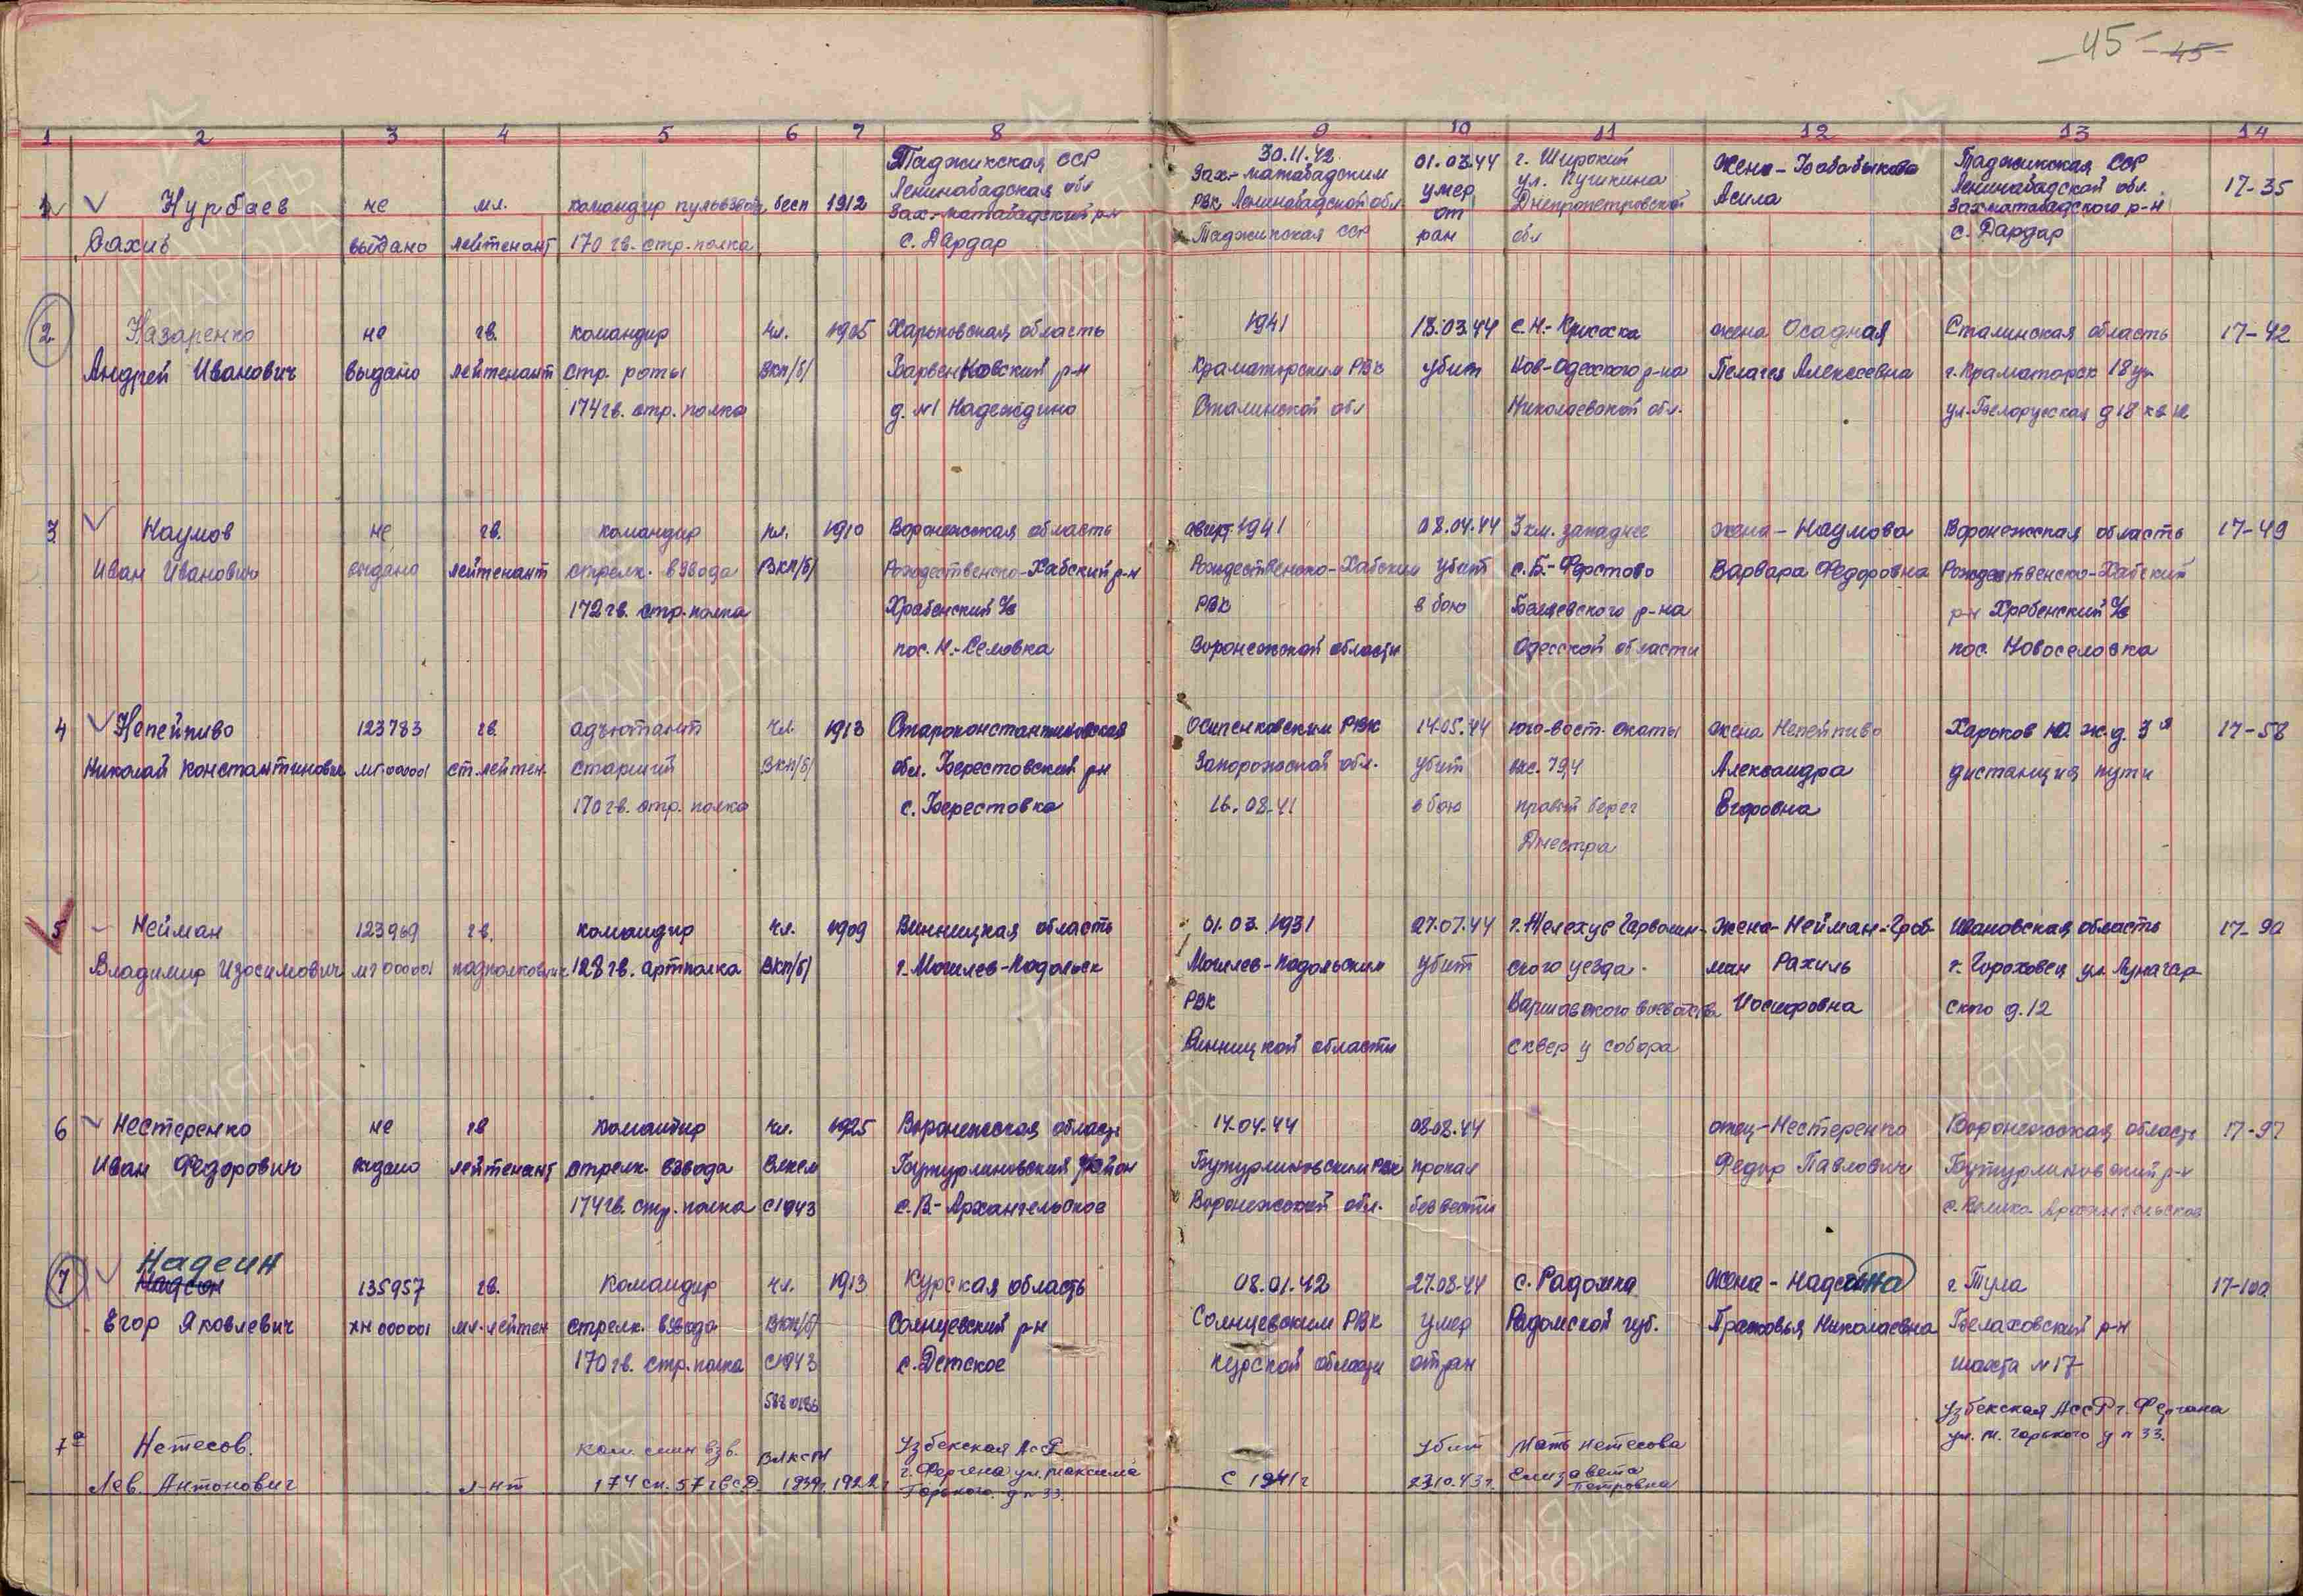 45 45
1 2 3 4 5 6 7 8 9 10 11 12 13 14
1 Нурбаев
Сахиб
не
выдано
мл.
лейтенант
командир пульвзвода
170 гв. стр. полка
бесп
1912
Таджикская ССР
Ленинабадская обл
Зах.-матабадский р-н
с. Дардар
30.11.42
Зах.-матабадским
РВК Ленинабадской обл.
Таджикская ССР
01.03.44
умер
от
ран
г. Широкий
ул. Пушкина
Днепропетровской
обл
жена - Бабабыкова
Асила
Таджикская ССР
Ленинабадской обл.
Захматабадского р-н
с. Дардар
17-35
2 Назаренко
Андрей Иванович
не
выдано
гв.
лейтенант
командир
стр. роты
174 гв. стр. полка
чл.
ВКП/б/
1925
Харьковская область
Барвенковский р-н
д. №1 Надеждино
1941
Краматорским РВК
Сталинской обл
18.03.44
убит
с. Н.-
Нов-Одесского р-на
Николаевской обл.
жена Осадная
Пелагея Алексеевна
Сталинская область
г. Краматорск 18 уч
ул. Белорусская д 18 кв 12
17-42
3 Наумов
Иван Иванович
не
выдано
гв.
лейтенант
командир
стрелк. взвода
172 гв. стр. полка
чл.
ВКП/б/
1910
Воронежская область
Рождественско-Хабский р-н
Хребенский с/с
пос. Н.-Селовка
август 1941
Рождественско-Хабским
РВК
Воронежской области
08.04.44
убит
в бою
3 км. западнее
с. Б.-Ферстово
Беляевского р-на
Одесской области
жена - Наумова
Варвара Федоровна
Воронежская область
Рождественско-Хабский
р-н Хребенский с/с
пос. Новоселовка
17-49
4 Непейпиво
Николай Константинович
123783
МГ 000001
гв.
ст. лейтен.
адъютант
старший
170 гв. стр. полка
чл.
ВКП/б/
1913
Староконстантиновская
обл. Берестовский р-н
с. Берестовка
Осипенковским РВК
Запорожской обл.
16.08.41
14.05.44
убит
в бою
юго-вост. скаты
выс. 79,4
правый берег
Днестра
жена Непейпиво
Александра
Егоровна
Харьков Ю. ж.д. 3я
дистанция пути
17-58
5 - Нейман
Владимир Изосимович
123969
МГ 000001
гв.
подполковник
командир
128 гв. артполка
чл.
ВКП/б/
1909
Винницкая область
г. Могилев-Подольск
01.03.1931
Могилев-Подольским
РВК
Винницкой области
27.07.44
убит
г. Желехув Гарволин-
ского уезда.
Варшавского воеводства
сквер у собора
жена - Нейман-Гроб-
ман Рахиль
Иосифовна
Ивановская область
г. Гороховец ул. Луначар
ского д. 12
17-90
6 Нестеренко
Иван Федорович
не
выдано
гв
лейтенант
командир
стрелк. взвода
174 гв. стр. полка
чл.
Влксм
с 1943
1925
Воронежская область
Бутурлиновский район
с. В.-Архангельское
14.04.44
Бутурлиновским РВК
Воронежской обл.
08.08.44
пропал
без вести
отец - Нестеренко
Федор Павлович
Воронежская область
Бутурлиновский р-н
с. Велико Архангельское
17-97
Надеин
7 Надсон
Егор Яковлевич
135957
ХН 000001
гв.
мл. лейтен
командир
стрелк. взвода
170 гв. стр. полка
чл.
ВКП/б/
с 1943
5880186
1913
Курская область
Солнцевский р-н
с. Детское
08.01.42
Солнцевским РВК
Курской области
27.08.44
умер
от ран
с. Радомка
Радомской губ.
жена - Надеина
Прасковья Николаевна
г. Тула
Белаховский р-н
шахта №17
17-100
7а Нетесов.
Лев. Антонович
л-нт
Ком. мин взв.
174 сп. 57 гв с.Д.
ВЛКСМ
1939г.
1922г
Узбекская АССР
г. Фергена ул. Максима
Горького. д n 33.
с 1941г
убит
23.10.43г.
Мать Нетесова
Елизавета
Петровна
Узбекская АССР г. Фергана
ул. М. Горького д n 33.
ПАМЯТЬ НАРОДА